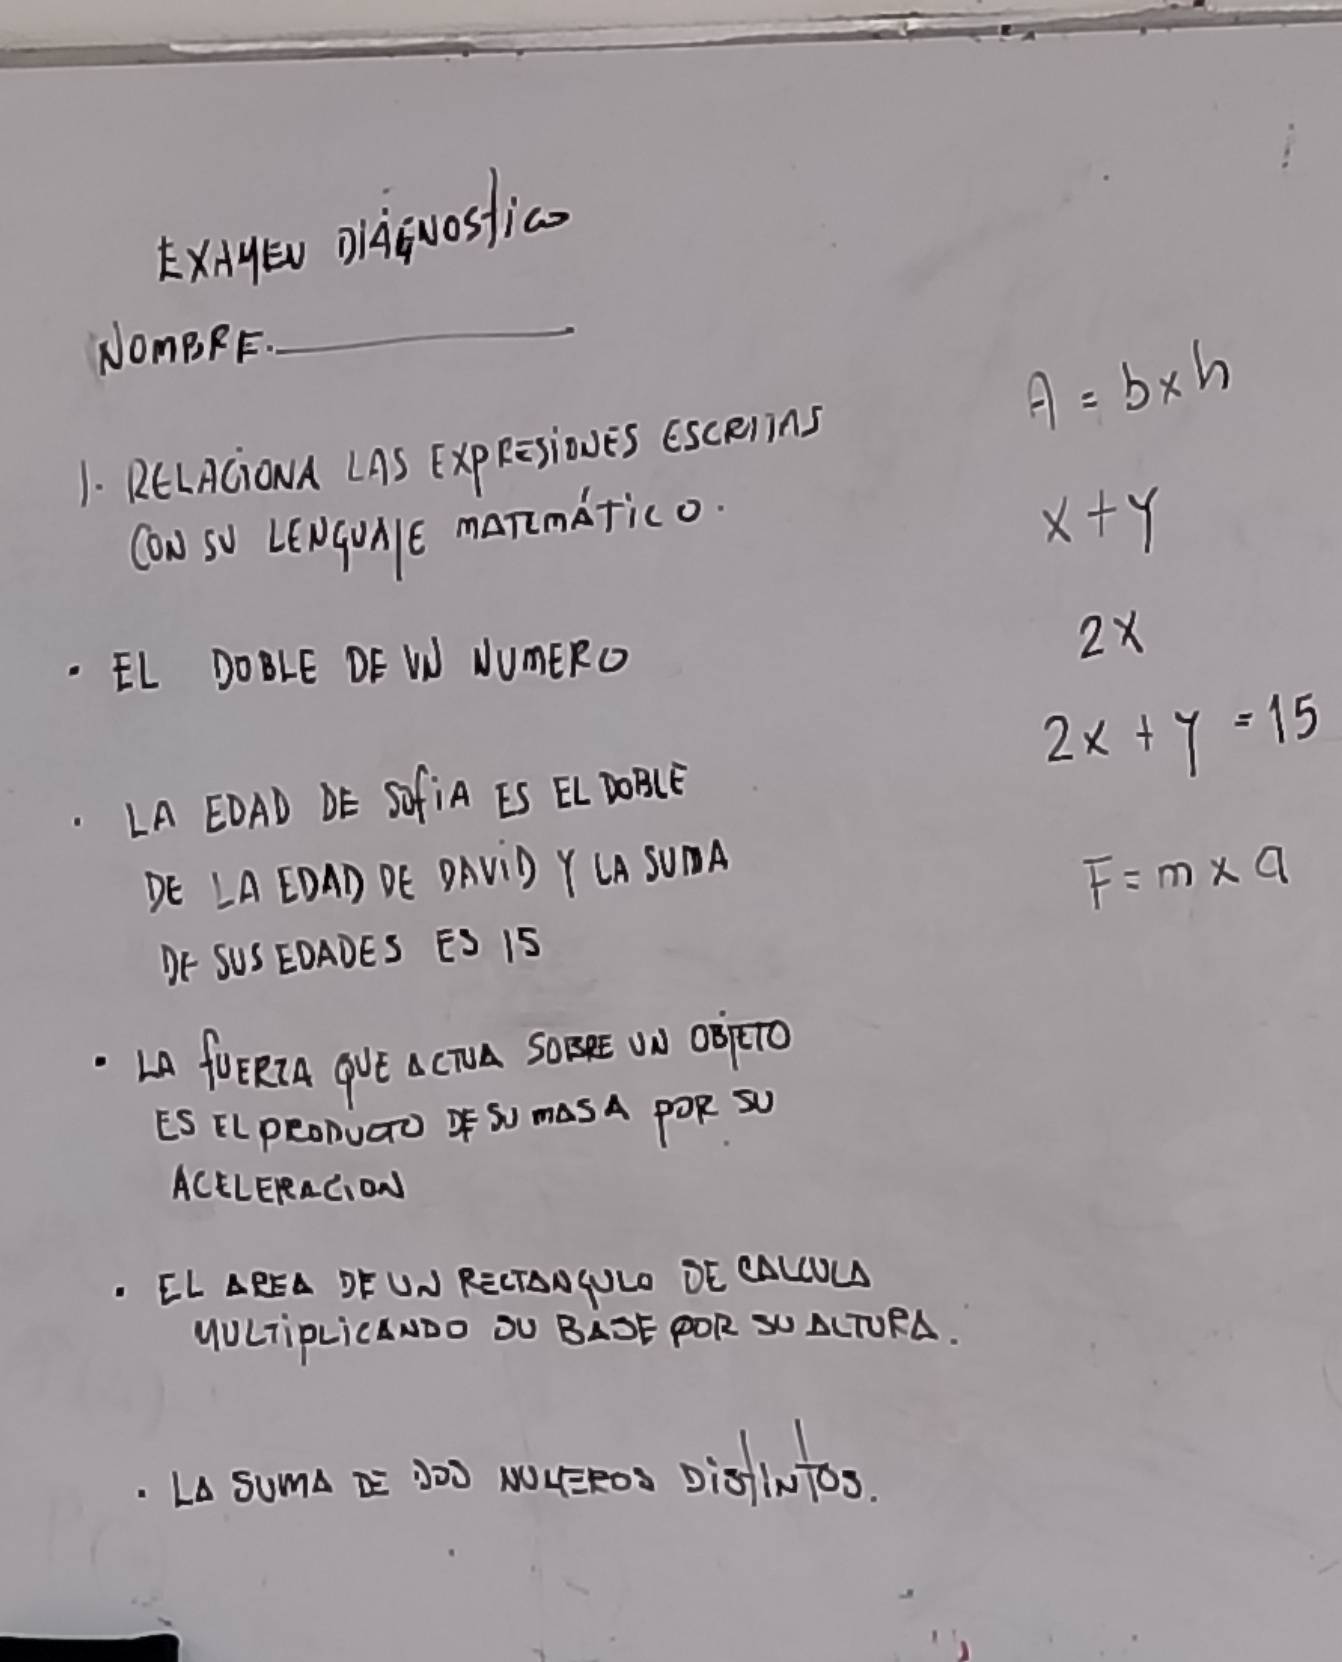 EXAMEN DIAGNOSTICO
NOMBRE.
1. RELACIONA LAS EXPRESIONES ESCRITAS
CON SU LENGUAJE MATEMÁTICO.
• EL DOBLE DE UN NUMERO
• LA EDAD DE SOFIA ES EL DOBLE
DE LA EDAD DE DAVID Y LA SUMA
DE SUS EDADES ES 15
• LA FUERZA QUE ACTUA SOBRE UN OBJETO
ES EL PRODUCTO DE SU MASA POR SU
ACELERACION
• EL AREA DE UN RECTANGULO DE CALCULA
MULTIPLICANDO SU BASE POR SU ALTURA.
• LA SUMA DE DOS NUMEROS DISTINTOS.
A = b x h
x + y
2x
2x + y = 15
F = m x a